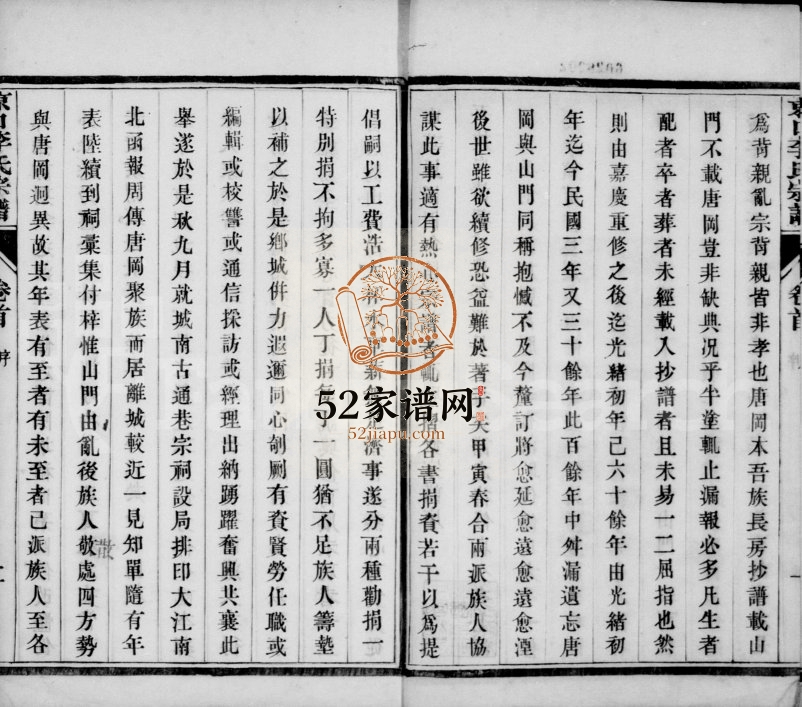 為背親亂宗背親皆非孝也唐岡本吾族長房抄譜載山
門不載唐岡豈非缺典况乎牛塗輒止漏報必多凡生者
配者卒者葬者未經載入抄譜者且未易一二屈指也然
則由嘉慶重修之後迄光緒初年己六十餘年由光緒初
年迄今民國三年又三十餘年此百餘年中舛漏遺忘唐
岡與山門同稱抱憾不及今釐訂將愈延愈遠愈遠愈湮
後世雖欲續修恐益難於著手矣甲寅春合兩派族人協
謀此事適有熱心宗譜者輒捐各書捐貲若干以為提
倡嗣以工費浩濟事遂分兩種勸捐一
特別捐不拘多寡一人丁捐每丁一圓猶不足族人籌墊
以補之於是鄉城併力遐邇同心剞劂有資賢勞任職或
編輯或校讐或通信採訪或經理出納踴躍奮興共襄此
舉遂於是秋九月就城南古通巷宗祠設局排印大江南
北函報周傳唐岡聚族而居離城較近一見知單隨有年
表陸續到祠彙集付梓惟山門由亂後族人散處四方勢
與唐岡迥異故其年表有至者有未至者己派族人至各
李氏宗譜
卷首
序
52家谱网
52jiapu.com